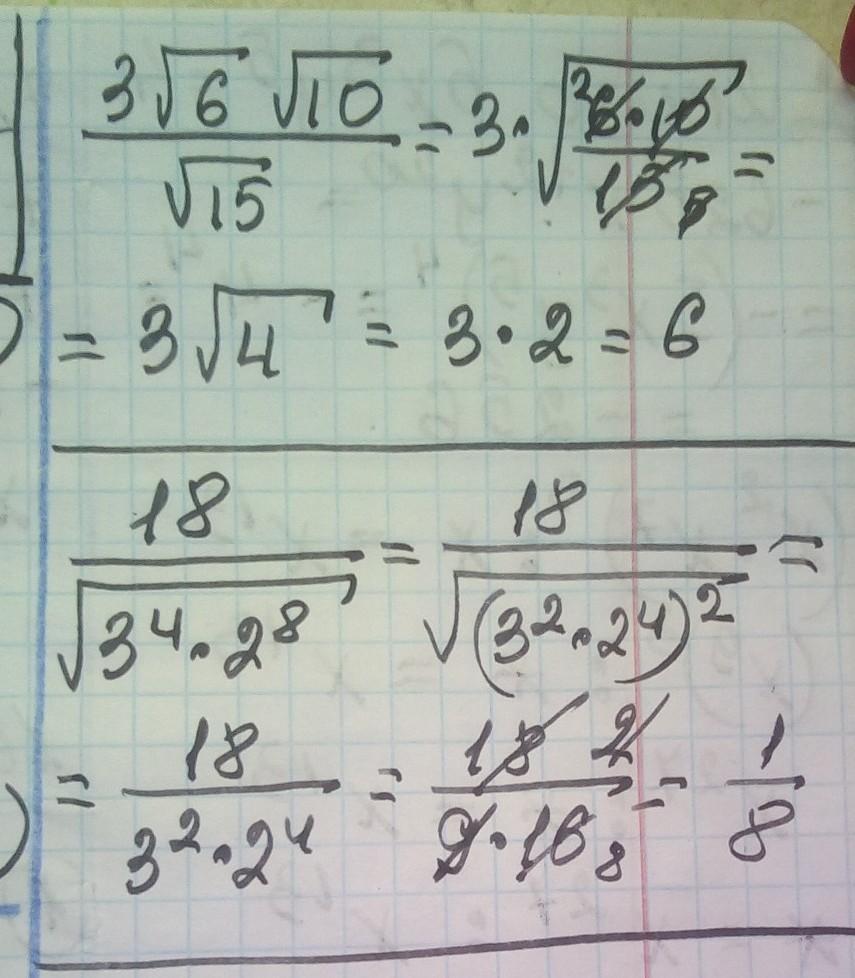 3√6 √10 / √15 = 3·√(6·10 / 15) =
= 3√4 = 3·2 = 6
18 / √(3⁴·2⁸) = 18 / √((3²·2⁴)²) =
= 18 / (3²·2⁴) = 18 2 / (9·16 8) = 1/8